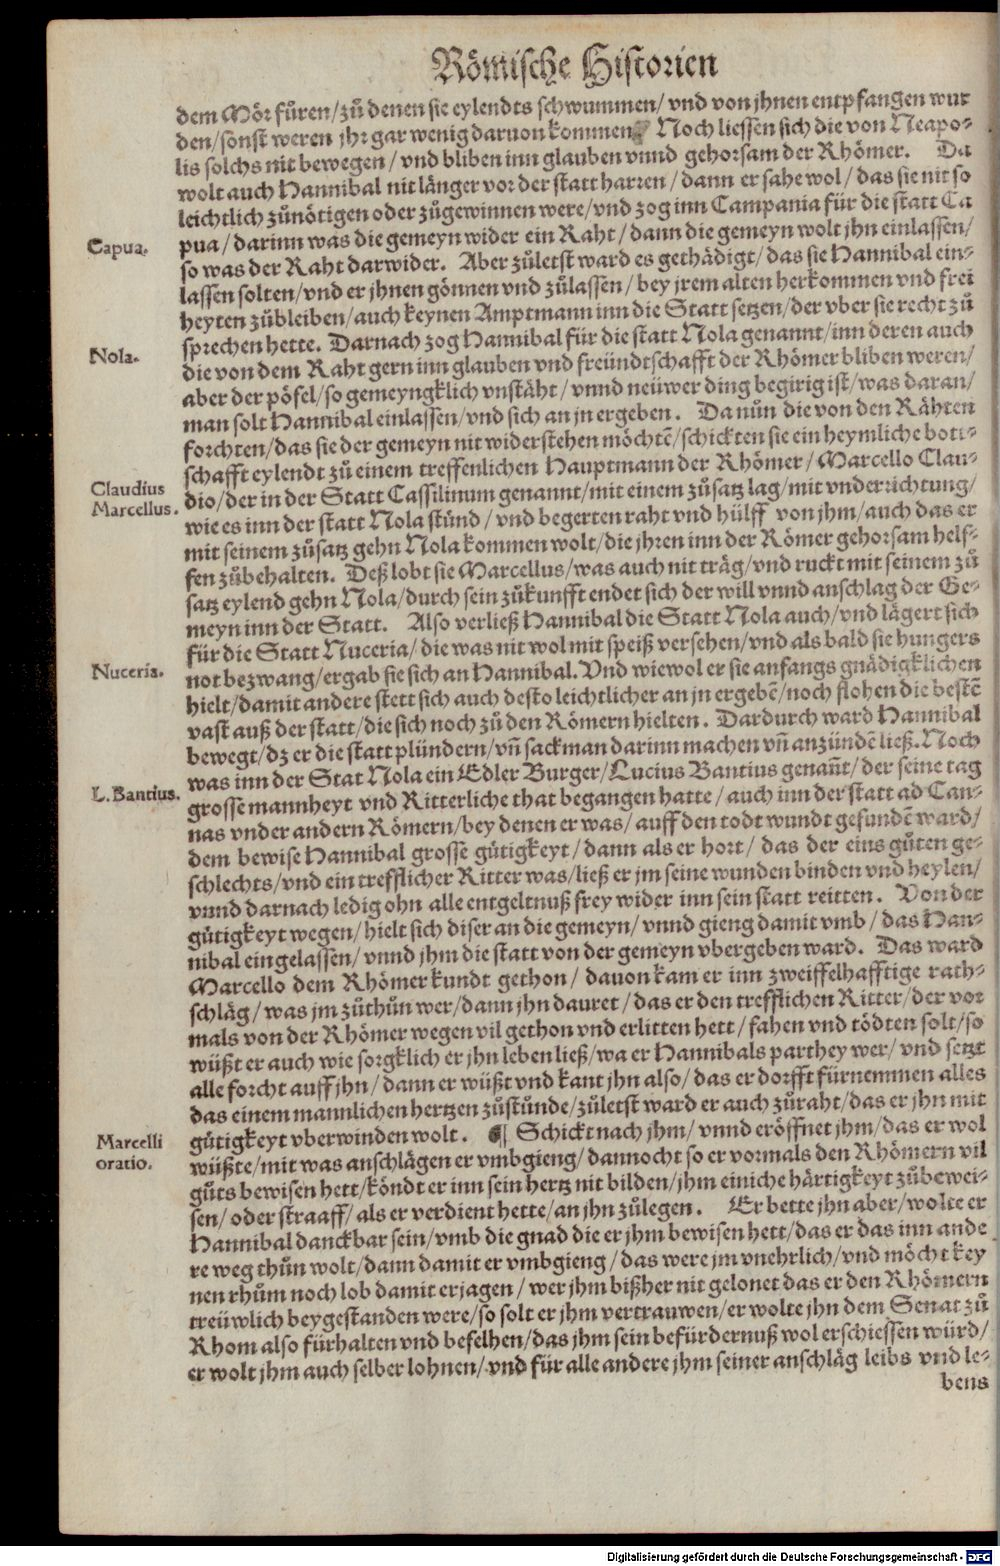 Römische Historien
dem Mör fůren/zů denen sie eylendts schwummen/vnd von jhnen entpfangen wur
den/sonst weren jhr gar wenig daruon kommen. Noch liessen sich die von Neapo-
lis solchs nit bewegen/vnd bliben inn glauben vnnd gehorsam der Rhömer. Da
wolt auch Hannibal nit länger vor der statt harren/dann er sahe wol/das sie nit so
leichtlich zůnötigen oder zůgewinnen were/vnd zog inn Campania für die statt Ca
Capua.
pua/darinn was die gemeyn wider ein Raht/dann die gemeyn wolt jhn einlassen/
so was der Raht darwider. Aber zůletst ward es gethädigt/das sie Hannibal ein-
lassen solten/vnd er jhnen gönnen vnd zůlassen/bey jrem alten herkommen vnd frei
heyten zůbleiben/auch keynen Amptmann inn die Statt setzen/der vber sie recht zů
sprechen hette. Darnach zog Hannibal für die statt Nola genannt/inn deren auch
Nola.
die von dem Raht gern inn glauben vnd freündtschafft der Rhömer bliben weren/
aber der pöfel/so gemeyngklich vnstäht/vnnd neüwer ding begirig ist/was daran/
man solt Hannibal einlassen/vnd sich an jn ergeben. Da nůn die von den Rähten
forchten/das sie der gemeyn nit widerstehen möchtē/schickten sie ein heymliche bott-
schafft eylendt zů einem treffenlichen Hauptmann der Rhömer/Marcello Clau-
Claudius
Marcellus.
dio/der in der Statt Cassilinum genannt/mit einem zůsatz lag/mit vnderrichtung/
wie es inn der statt Nola stůnd/vnd begerten raht vnd hülff von jhm/auch das er
mit seinem zůsatz gehn Nola kommen wolt/die jhren inn der Römer gehorsam helf-
fen zůbehalten. Deß lobt sie Marcellus/was auch nit träg/vnd ruckt mit seinem zů
satz eylend gehn Nola/durch sein zůkunfft endet sich der will vnnd anschlag der Ge-
meyn inn der Statt. Also verließ Hannibal die Statt Nola auch/vnd lägert sich
für die Statt Nuceria/die was nit wol mit speiß versehen/vnd als bald sie hungers
Nuceria.
not bezwang/ergab sie sich an Hannibal. Vnd wiewol er sie anfangs gnädigklichen
hielt/damit andere stett sich auch desto leichtlicher an jn ergebē/noch flohen die bestē
vast auß der statt/die sich noch zů den Römern hielten. Dardurch ward Hannibal
bewegt/dz er die statt plündern/vn̄ sackman darinn machen vn̄ anzündē ließ. Noch
was inn der Stat Nola ein Edler Burger/Lucius Bantius genan̄t/der seine tag
L. Bantius.
grosse mannheyt vnd Ritterliche that begangen hatte/auch inn der statt ad Can-
nas vnder andern Römern/bey denen er was/auff den todt wundt gefundē ward/
dem bewise Hannibal grosse gütigkeyt/dann als er hort/das der eins gůten ge-
schlechts/vnd ein trefflicher Ritter was/ließ er jm seine wunden binden vnd heylen/
vnnd darnach ledig ohn alle entgeltnuß frey wider inn sein statt reitten. Von der
gütigkeyt wegen/hielt sich diser an die gemeyn/vnnd gieng damit vmb/das Han-
nibal eingelassen/vnnd jhm die statt von der gemeyn vbergeben ward. Das ward
Marcello dem Rhömer kundt gethon/dauon kam er inn zweiffelhafftige rath-
schläg/was jm zůthůn wer/dann jhn dauret/das er den trefflichen Ritter/der vor
mals von der Rhömer wegen vil gethon vnd erlitten hett/fahen vnd tödten solt/so
wüßt er auch wie sorgklich er jhn leben ließ/wa er Hannibals parthey wer/vnd setzt
alle forcht auff jhn/dann er wüßt vnd kant jhn also/das er dorfft fürnemmen alles
das einem mannlichen hertzen zůstünde/zůletst ward er auch zůraht/das er jhn mit
Marcelli
oratio.
gütigkeyt vberwinden wolt. ¶ Schickt nach jhm/vnnd eröffnet jhm/das er wol
wüßte/mit was anschlägen er vmbgieng/dannocht so er vormals den Rhömern vil
gůts bewisen hett/köndt er inn sein hertz nit bilden/jhm einiche härtigkeyt zůbewei-
sen/oder straaff/als er verdient hette/an jhn zůlegen. Er bette jhn aber/wolte er
Hannibal danckbar sein/vmb die gnad die er jhm bewisen hett/das er das inn ande
re weg thůn wolt/dann damit er vmbgieng/das were jm vnehrlich/vnd möcht key
nen rhům noch lob damit erjagen/wer jhm bißher nit gelonet das er den Rhömern
treüwlich beygestanden were/so solt er jhm vertrauwen/er wolte jhn dem Senat zů
Rhom also fürhalten vnd befelhen/das jhm sein befürdernuß wol erschiessen würd/
er wolt jhm auch selber lohnen/vnd für alle andere jhm seiner anschläg leibs vnd le-
bens
Digitalisierung gefördert durch die Deutsche Forschungsgemeinschaft - DFG